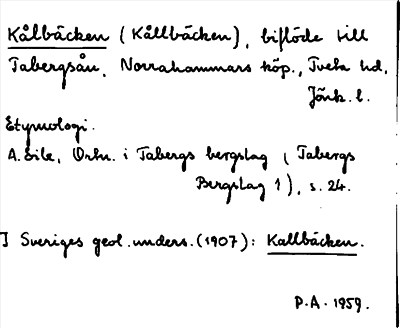 Kålbäcken (Kållbäcken), biflöde till
Tabergsån, Norrahammars köp., Tveta hd,
Jönk. l.
Etymologi.
A. Eile, Ortn. i Tabergs bergslag (Tabergs
Bergslag 1), s. 24.
I Sveriges geol. unders. (1907): Kallbäcken.
P.A. 1959.